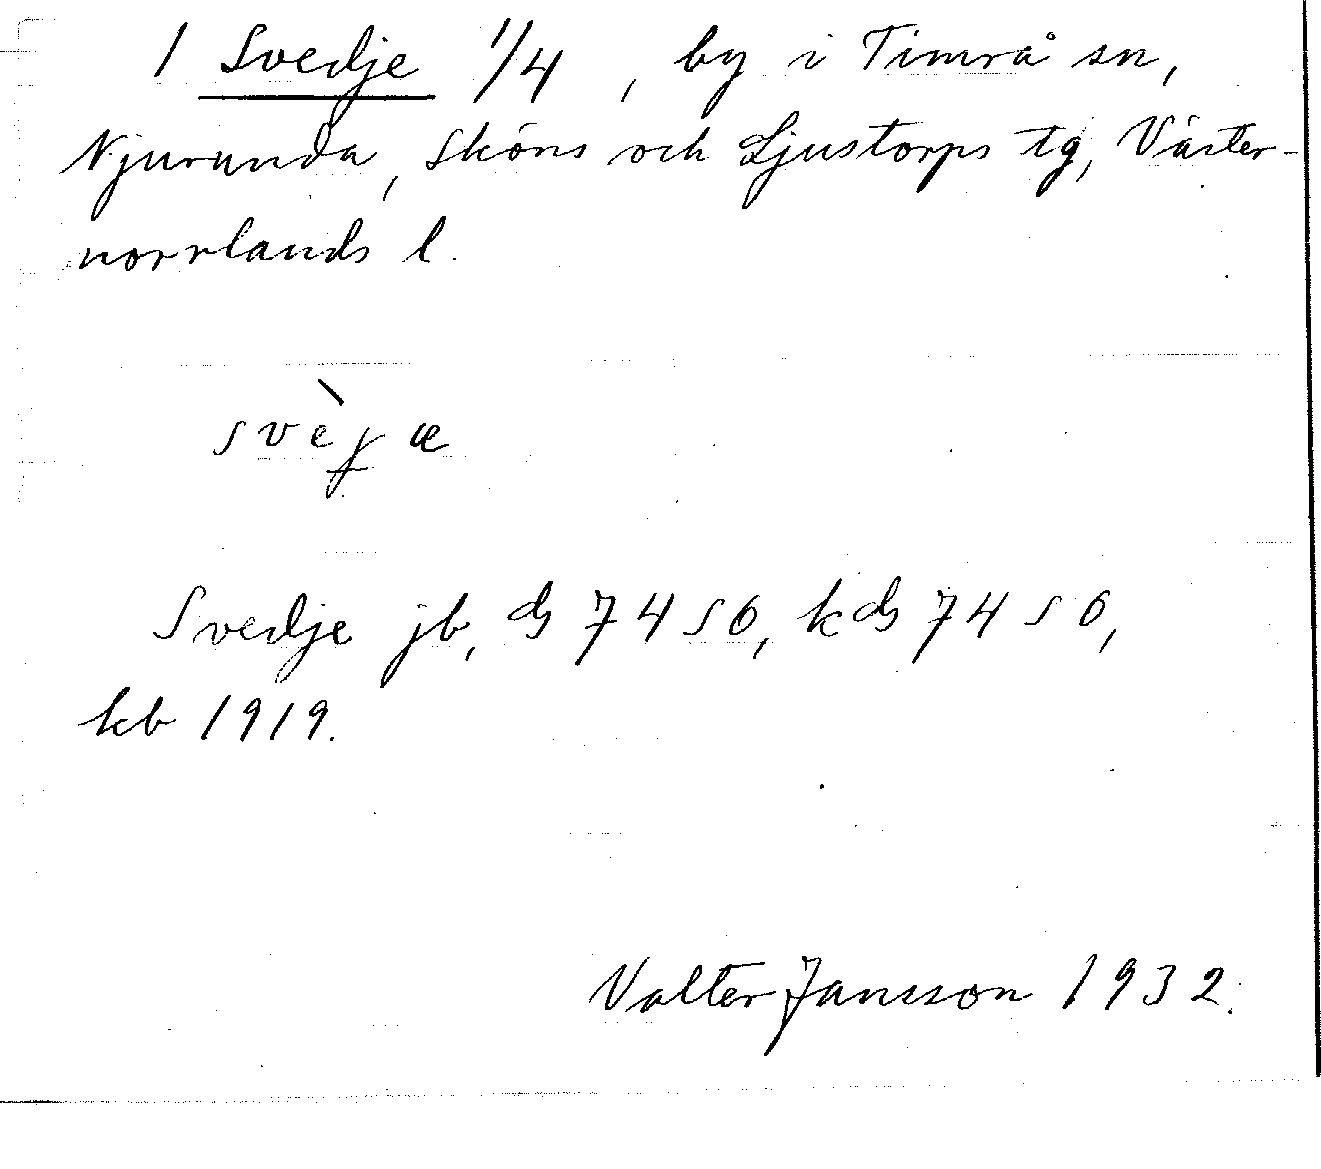 1 Svedje 1/4, by i Timrå sn,
Njurunda, Sköns och Ljustorps tg, Väster-
norrlands l.
svèɟæ
Svedje jb, ds 74 SO, kds 74 SO,
kb 1919.
Valter Jansson 1932.